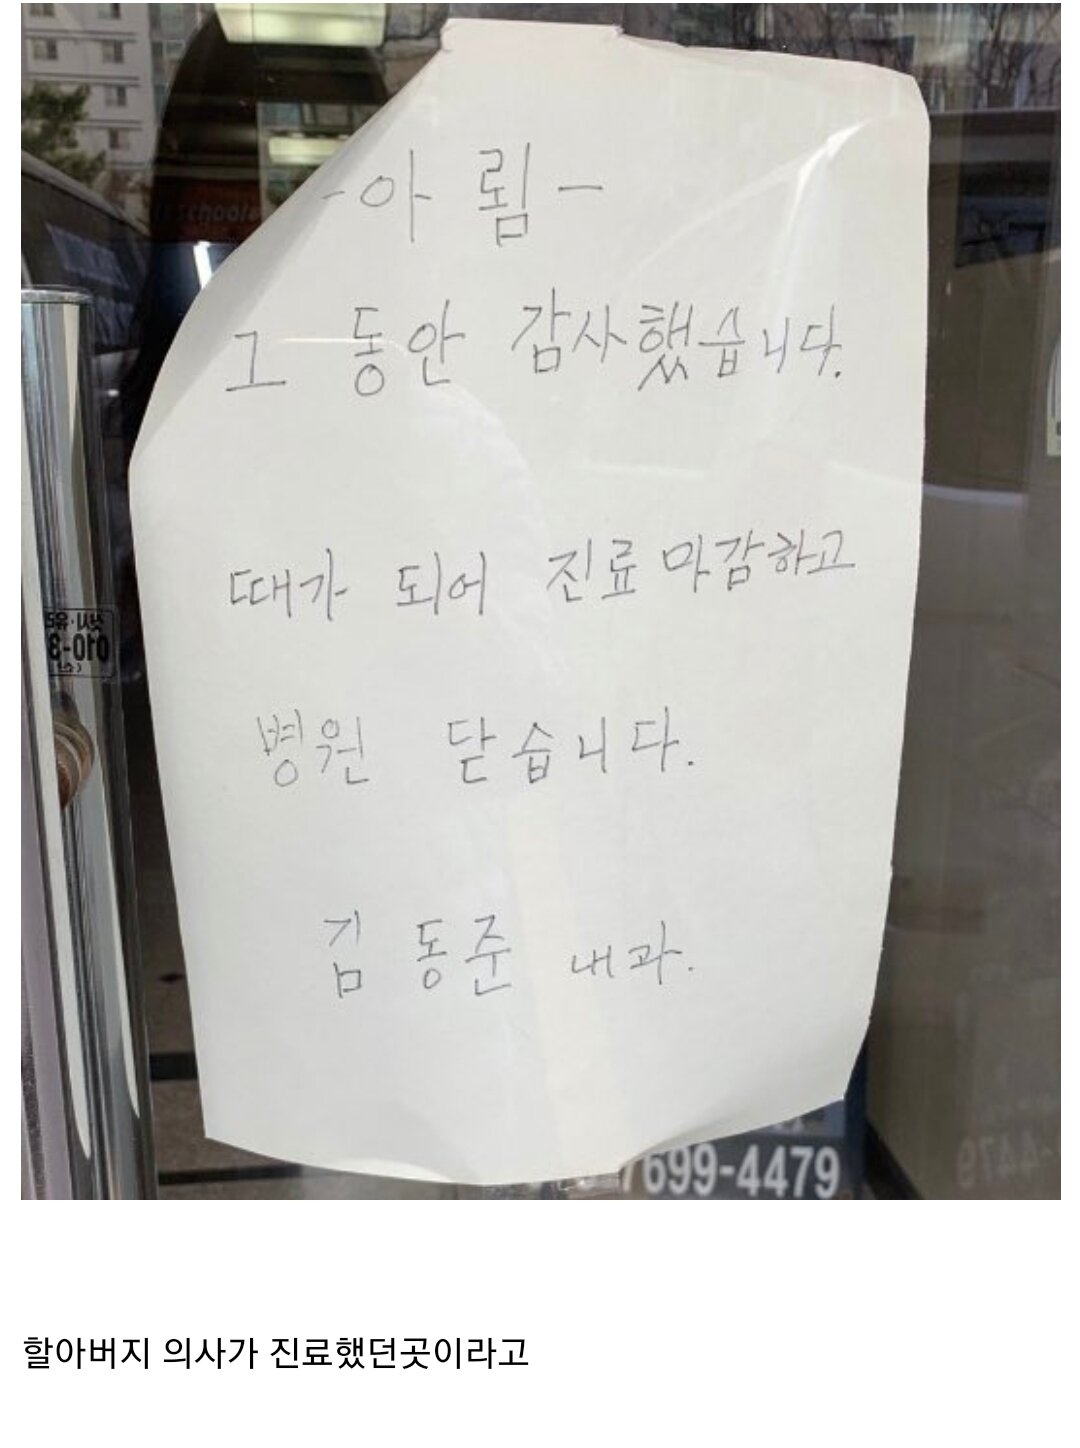 -아 림-
그 동안 감사했습니다.
때가 되어 진료 마감하고
병원 닫습니다.
김 동준 내과.
7699-4479
할아버지 의사가 진료했던곳이라고